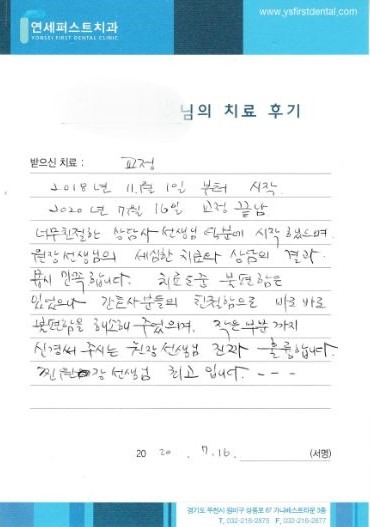 연세퍼스트치과
YONSEI FIRST DENTAL CLINIC
www.ysfirstdental.com
님의 치료 후기
받으신 치료 : 교정
2018년 11월 1일 부터 시작.
2020년 7월 16일 교정 끝남
너무친절한 상담사선생님 덕분에 시작했으며.
원장선생님의 세심한 치료와 상담의 결과.
몹시 만족합니다. 치료도중 불편함은
있었으나 간호사분들의 친절함으로 바로바로
불편함을 해소해 주었으며. 작은부분까지
신경써 주시는 원장선생님 진짜 훌륭합니다.
원장선생님 최고입니다. - - -
20 20 . 7.16. (서명)
경기도 부천시 원미구 상동로 87 가나베스트타운 3층
T. 032-216-2875 F. 032-216-2877